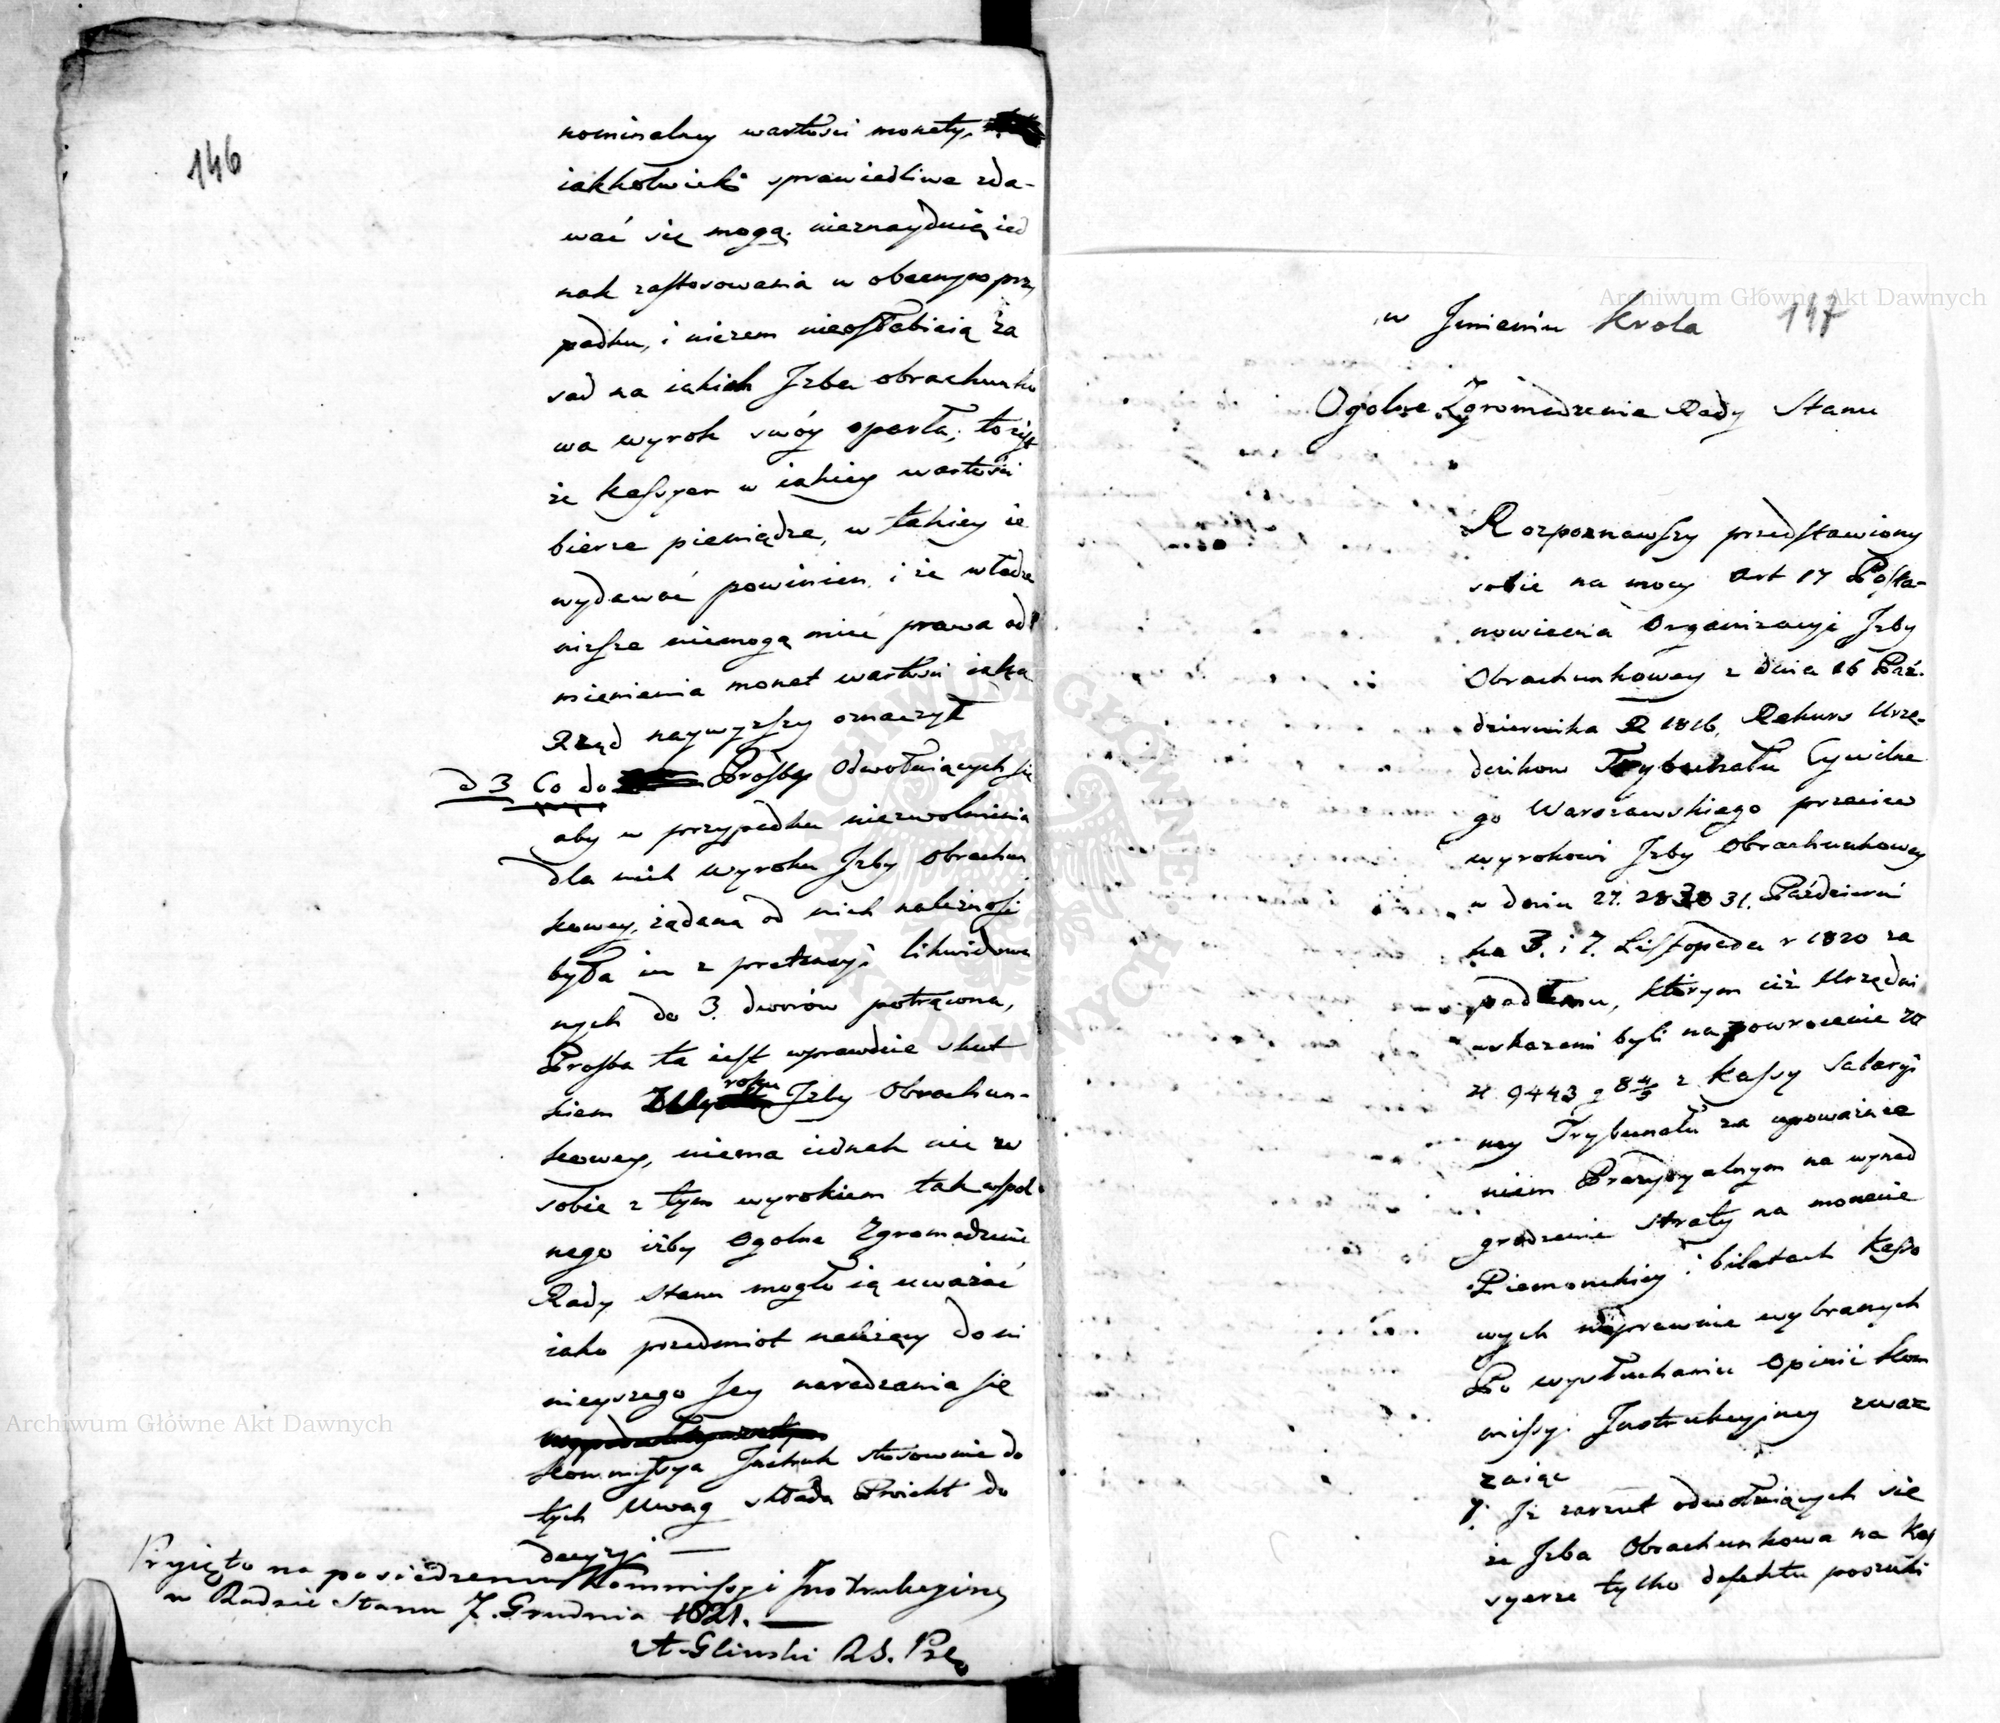 146
nominalney wartości monety,
iakkolwiek sprawiedliwe zda-
wać się mogą, nieznayduią ied
nak zastosowania w obecnym przy
padku, i niczem nieosłabiaią za
sad na iakich Izba obrachunko
wa wyrok swóy oparła, to iest
że Kassyer w iakiey wartości
bierze pieniądze, w takiey ie
wydawać powinien i że władze
niższe niemogą mieć prawa od
mieniania monet wartości iaką
Rząd naywyższy oznaczył
d 3 Co do Prośby Odwołuiących się
aby w przypadku niezwolnienia
dla nich Wyroku Izby Obrachun
kowey, żądana od nich należność
była im z pretensyi likwidowa
nych do 3. dworów potrącona,
Prośba ta iest wprawdzie skut
kiem Wyroku Izby Obrachun-
kowey, niema iednak nic w
sobie z tym wyrokiem tak wspol-
nego iżby Ogolne Zgromadzenie
Rady Stanu mogło ią uważać
iako przedmiot należący do ni
nieyszego Jey naradzania się
Kommissya Instruk stosownie do
tych Uwag składa Proiekt do
decyzyi —
Przyięto na posiedzeniu Kommissyi Instrukcyiney
w Radzie Stanu 7. Grudnia 1821. —
A. Glinski R.S. Prez
Archiwum Główne Akt Dawnych
147
w Imieniu Krola
Ogolne Zgromadzenie Rady Stanu
Rozpoznawszy przedstawiony
sobie na mocy Art 17 Posta-
nowienia Organizacyi Izby
Obrachunkowey z dnia 16 Paź-
dziernika R 1816, Rekurs Urzę-
dnikow Trybunału Cywilne
go Warszawskiego przeciw
wyrokowi Izby Obrachunkowey
w dniu 27. 28 30 31. Październi
ka 3. i 7. Listopada r 1820 za
padłemu, którym ciż Urzędni
wskazani byli na powrocenie
zł 9443 g 8 4/5 z Kassy Salaryi
ney Trybunału za upoważnie
niem Prezydyalnym na wynad
grodzenie straty na monecie
Piemonckiey i biletach Kasso
wych nieprawnie wybranych
Po wysłuchaniu Opinii Kom
missyi Instrukcyjney zwa
żaiąc
1. Iż zarzut odwołuiących się
że Izba Obrachunkowa na Kas
syerze tylko defektu poszuki
Archiwum Główne Akt Dawnych
ARCHIWUM GŁÓWNE AKT DAWNYCH